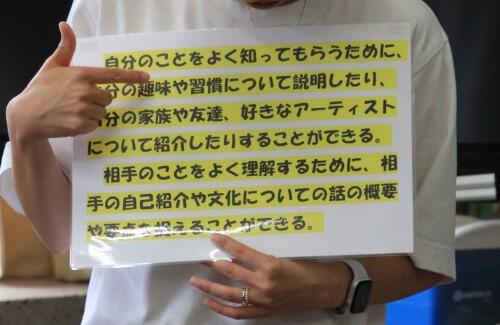 自分のことをよく知ってもらうために、
分の趣味や習慣について説明したり、
分の家族や友達、好きなアーティスト
について紹介したりすることができる。
相手のことをよく理解するために、相
手の自己紹介や文化についての話の概要
や要点を捉えることができる。